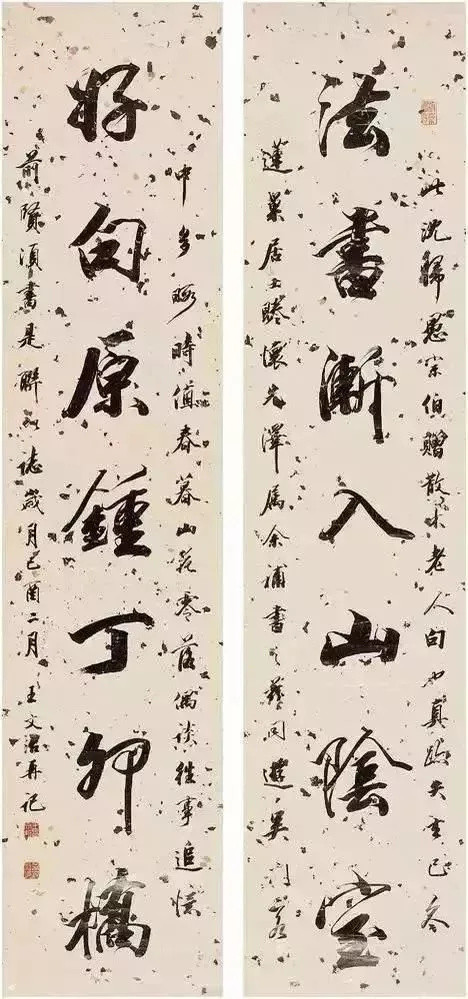 法書漸入山陰室
好句原鍾丁卯橋
此沈歸愚宗伯贈散木老人句也真跡失去已久
蓮巢居士睠懷先澤屬余補書之茲同遊吳門客
中多暇時值春暮山花零落偶談往事追憶
前賢書是聯以誌歲月己酉二月王文治再記